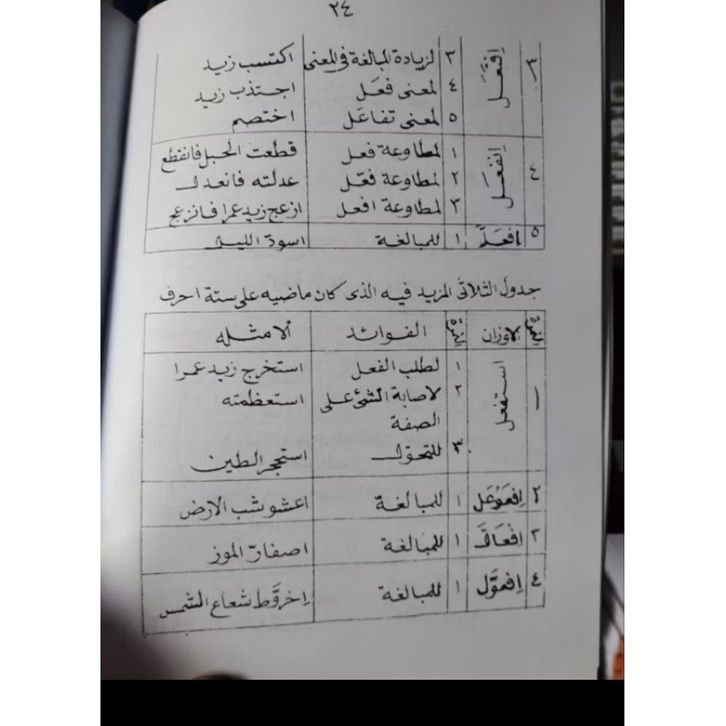 ٢٤
٣ اِفْتَعَل ٣ لزيادة المبالغة فى المعنى اكتسب زيد
٤ لمعنى فعَل اجتذب زيد
٥ لمعنى تفاعَل اختصم
٤ اِنْفَعَل ١ لمطاوعة فعل قطعت الحبل فانقطع
٢ لمطاوعة فعّل عدلته فانعدل
٣ لمطاوعة افعل ازعج زيد عمرا فانزعج
٥ اِفعَلَّ ١ للمبالغة اسودّ الليل
جدول الثلاثى المزيد فيه الذى كان ماضيه على ستة احرف
النمرة الاوزان النمرة الفوائد الامثله
١ استفعل ١ لطلب الفعل استخرج زيد عمرا
٢ لاصابة الشئ على استعظمته
الصفة
٣ للتحوّل استحجر الطين
٢ اِفعَوْعَل ١ للمبالغة اعشوشب الارض
٣ اِفعَالَّ ١ للمبالغة اصفارّ الموز
٤ اِفعوَّل ١ للمبالغة اِخروَّط شعاع الشمس